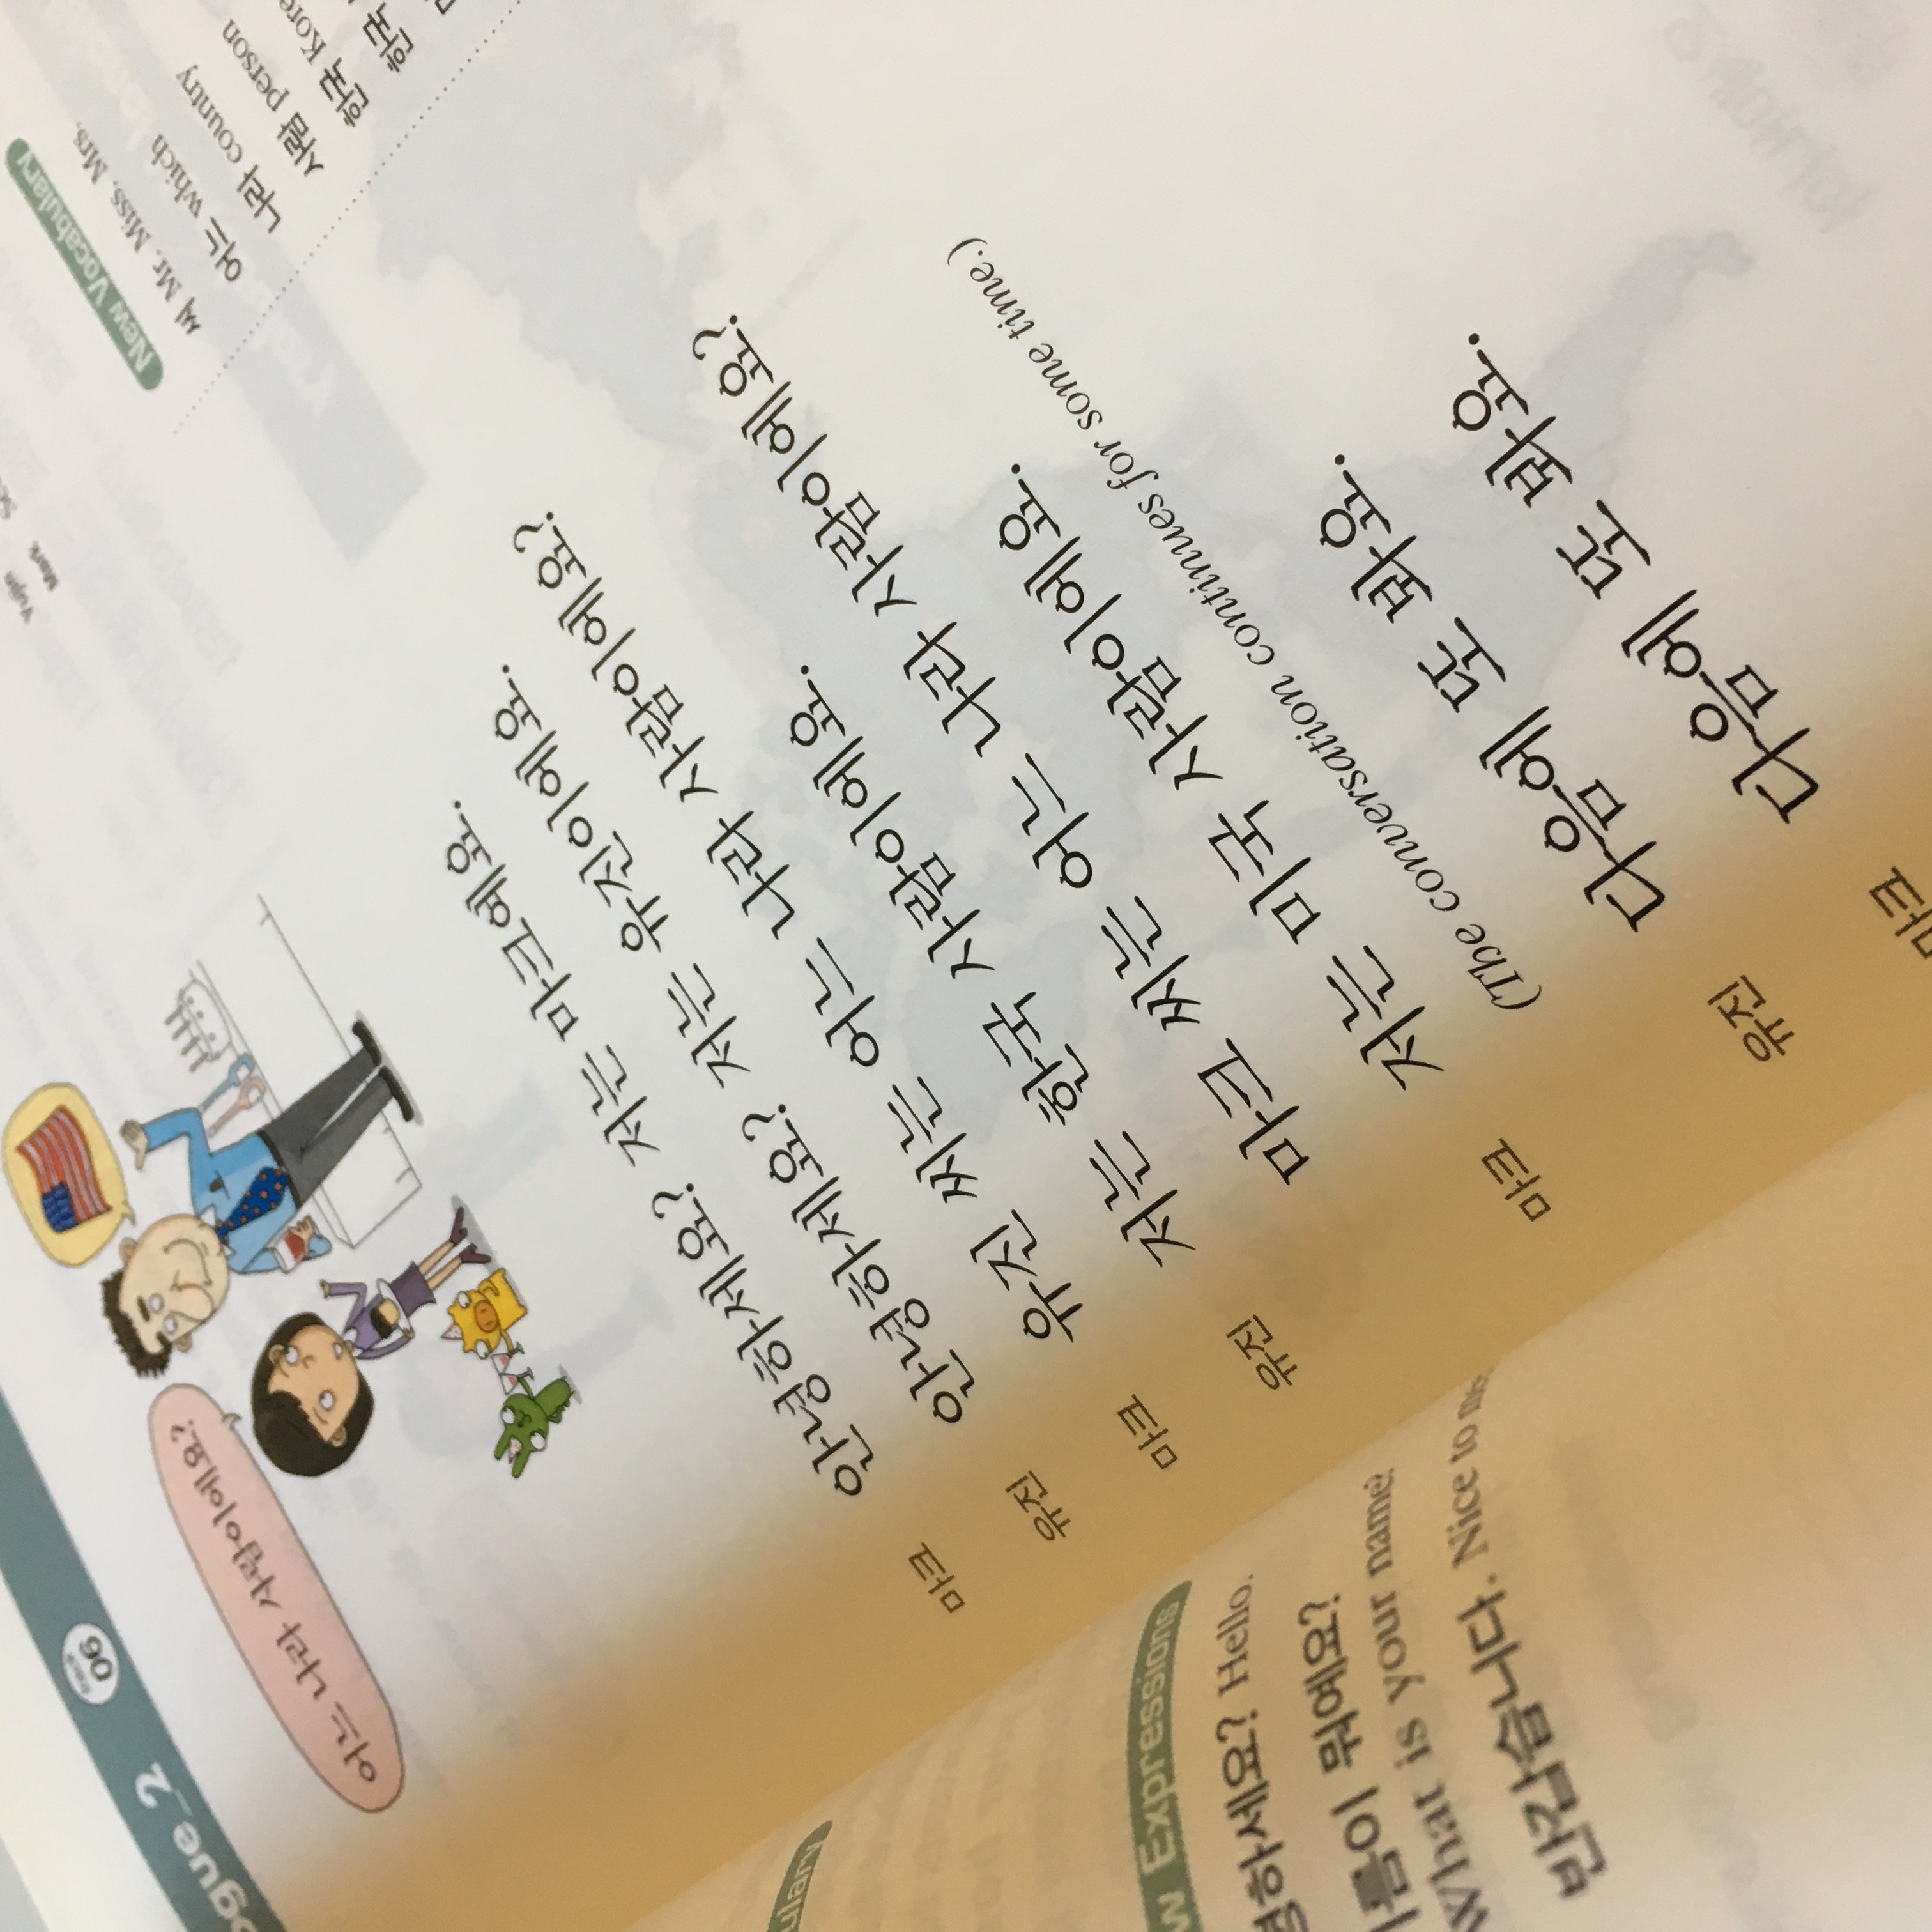 ogue_2
Track
06
어느 나라 사람이에요?
마크
안녕하세요? 저는 마크예요.
유진
안녕하세요? 저는 유진이에요.
마크
유진 씨는 어느 나라 사람이에요?
유진
저는 한국 사람이에요.
마크 씨는 어느 나라 사람이에요?
마크
저는 미국 사람이에요.
(The conversation continues for some time.)
유진
다음에 또 봐요.
마크
다음에 또 봐요.
New Vocabulary
씨 Mr. Miss, Mrs.
어느 which
나라 country
사람 person
한국 Kore
한국
Mark
Yujin
w Expressions
녕하세요? Hello.
름이 뭐예요?
What is your name?
반갑습니다. Nice to